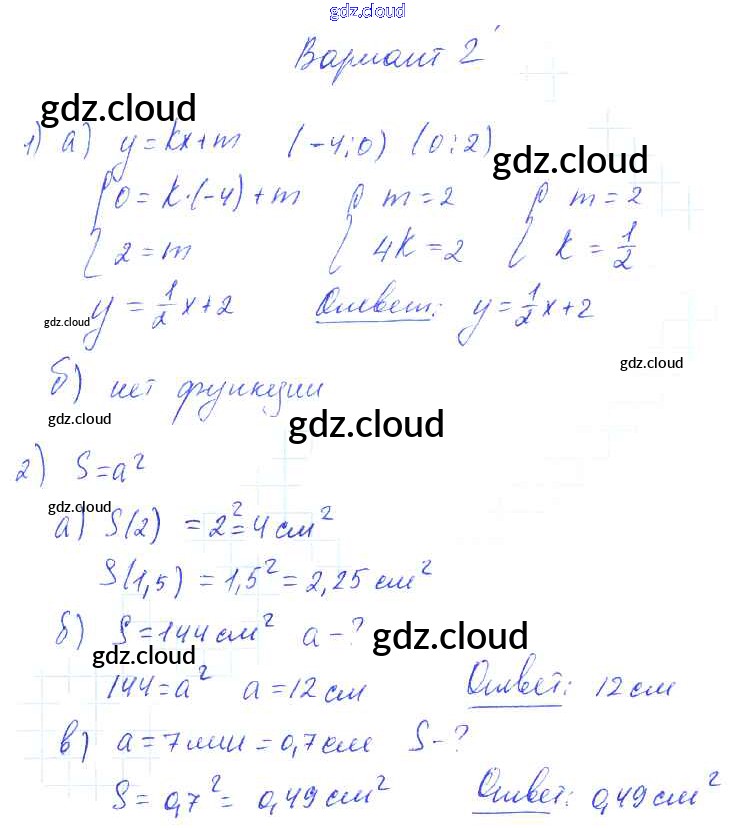 gdz.cloud
Вариант 2
gdz.cloud
1) а) y = kx + m (-4; 0) (0; 2)
gdz.cloud
{ 0 = k·(-4) + m { m = 2 { m = 2
2 = m 4k = 2 k = 1/2
y = 1/2 x + 2 Ответ: y = 1/2 x + 2
gdz.cloud
gdz.cloud
б) нет функции
gdz.cloud
gdz.cloud
2) S = a²
gdz.cloud
а) S(2) = 2² = 4 см²
S(1,5) = 1,5² = 2,25 см²
б) S = 144 см² a - ?
gdz.cloud
gdz.cloud
144 = a² a = 12 см Ответ: 12 см
в) a = 7 мм = 0,7 см S - ?
gdz.cloud
gdz.cloud
S = 0,7² = 0,49 см² Ответ: 0,49 см²